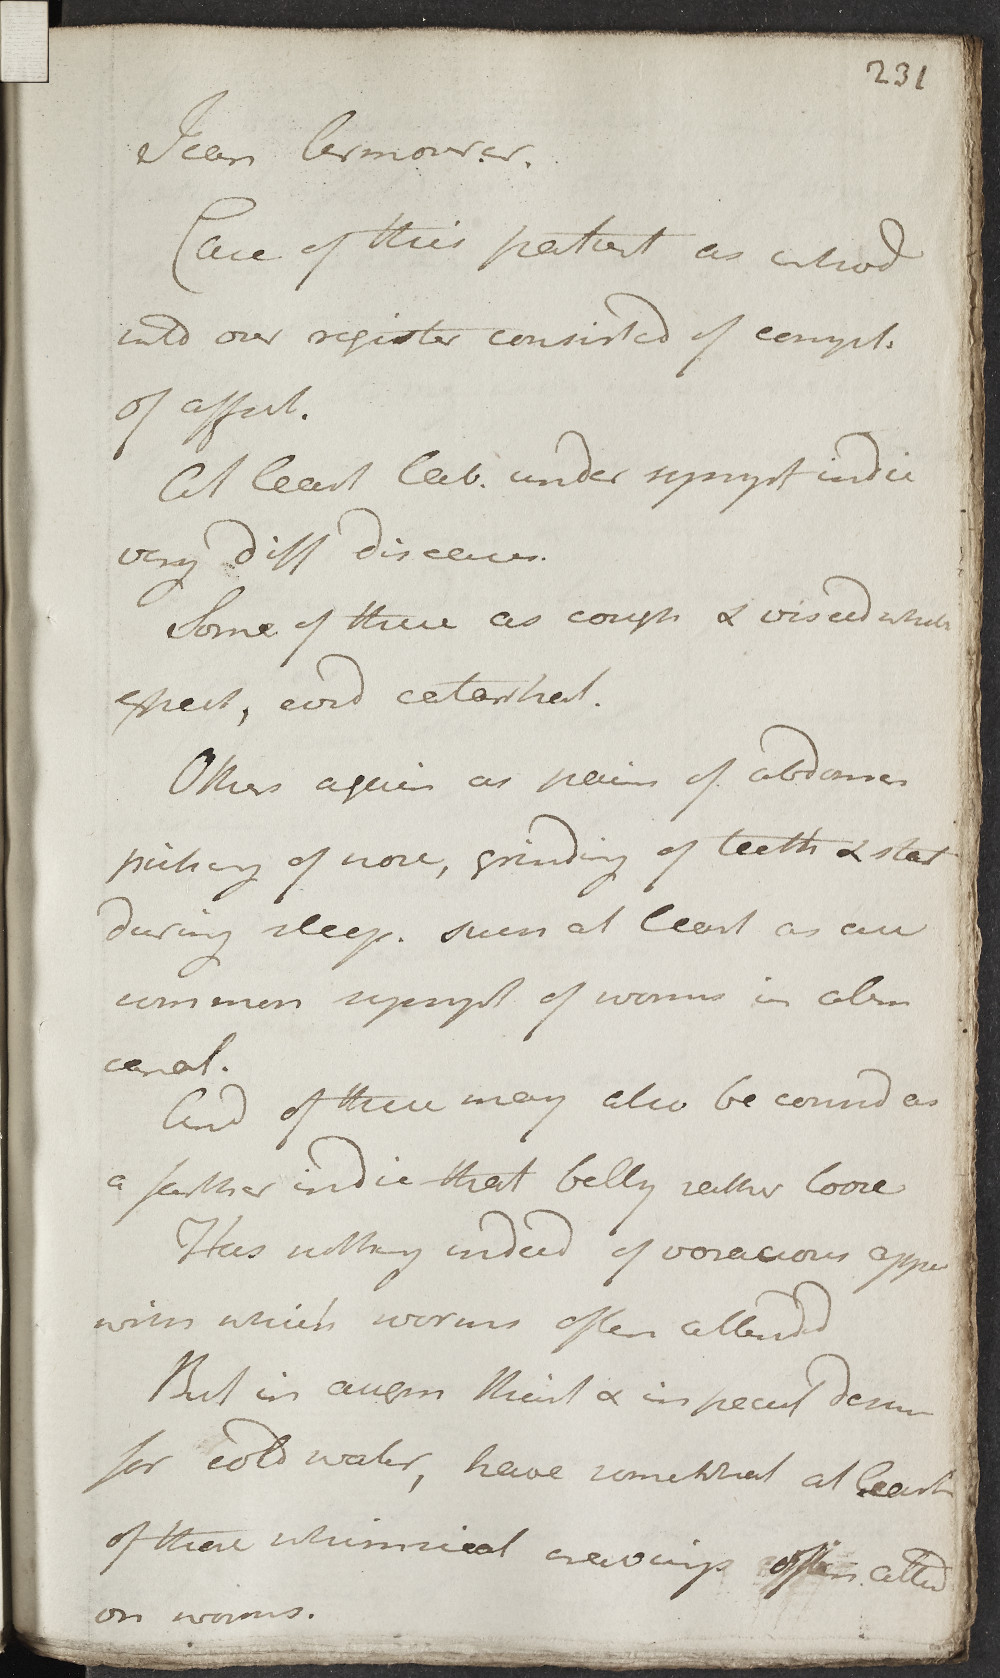 231
Jean
Case of this patient as introd
into our register consisted of compl.
of affect.
At least lab. under sympt indic
very diff diseases.
Some of these as cough & viscid white
expect, evid catarrhal.
Others again as pains of abdomen
picking of nose, grinding of teeth & start
during sleep. seem at least as an
common sympt of worms in alim
canal.
And of these may also be consid as
a farther indic that belly rather loose
Has nothing indeed of voracious appe
with which worms often attendd
But in augm thirst & in pecul desire
for cold water, have somewhat at least
of those whimsical cravings often attend
on worms.